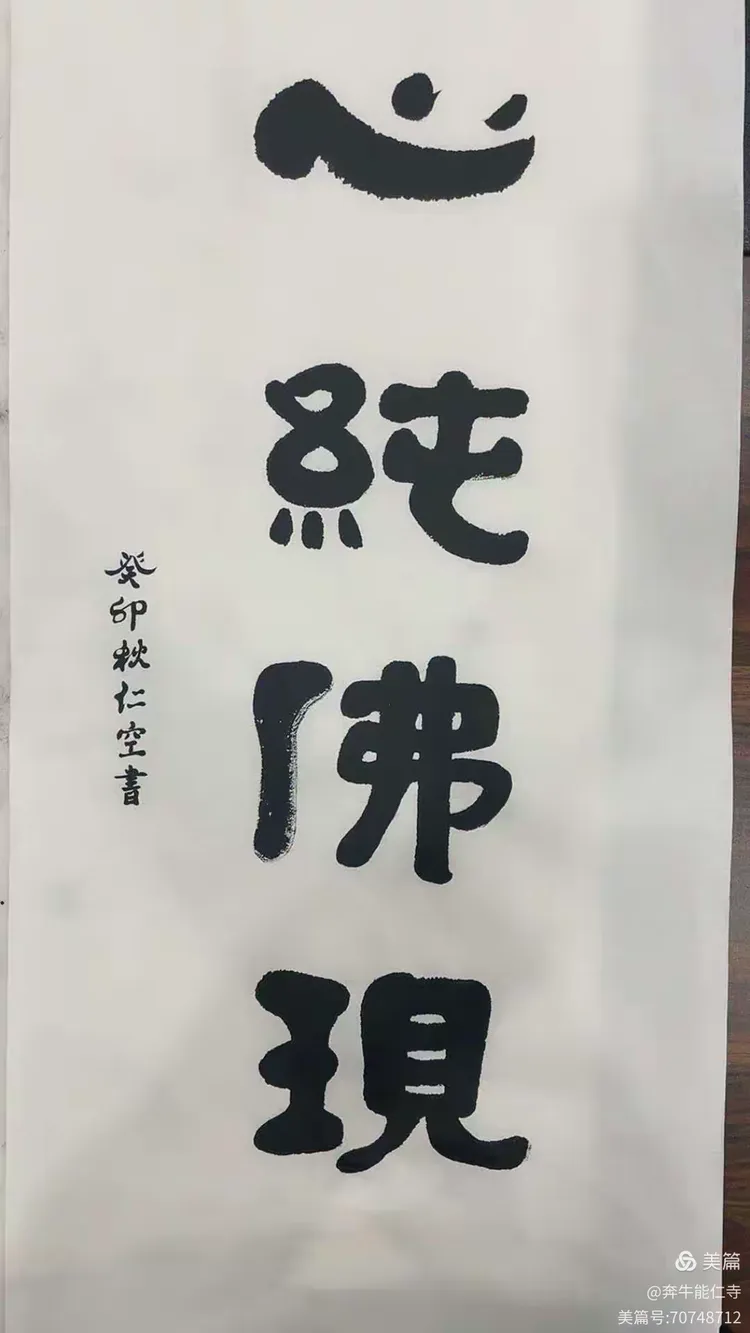 心純佛現
癸卯秋仁空書
美篇
@奔牛能仁寺
美篇号:70748712